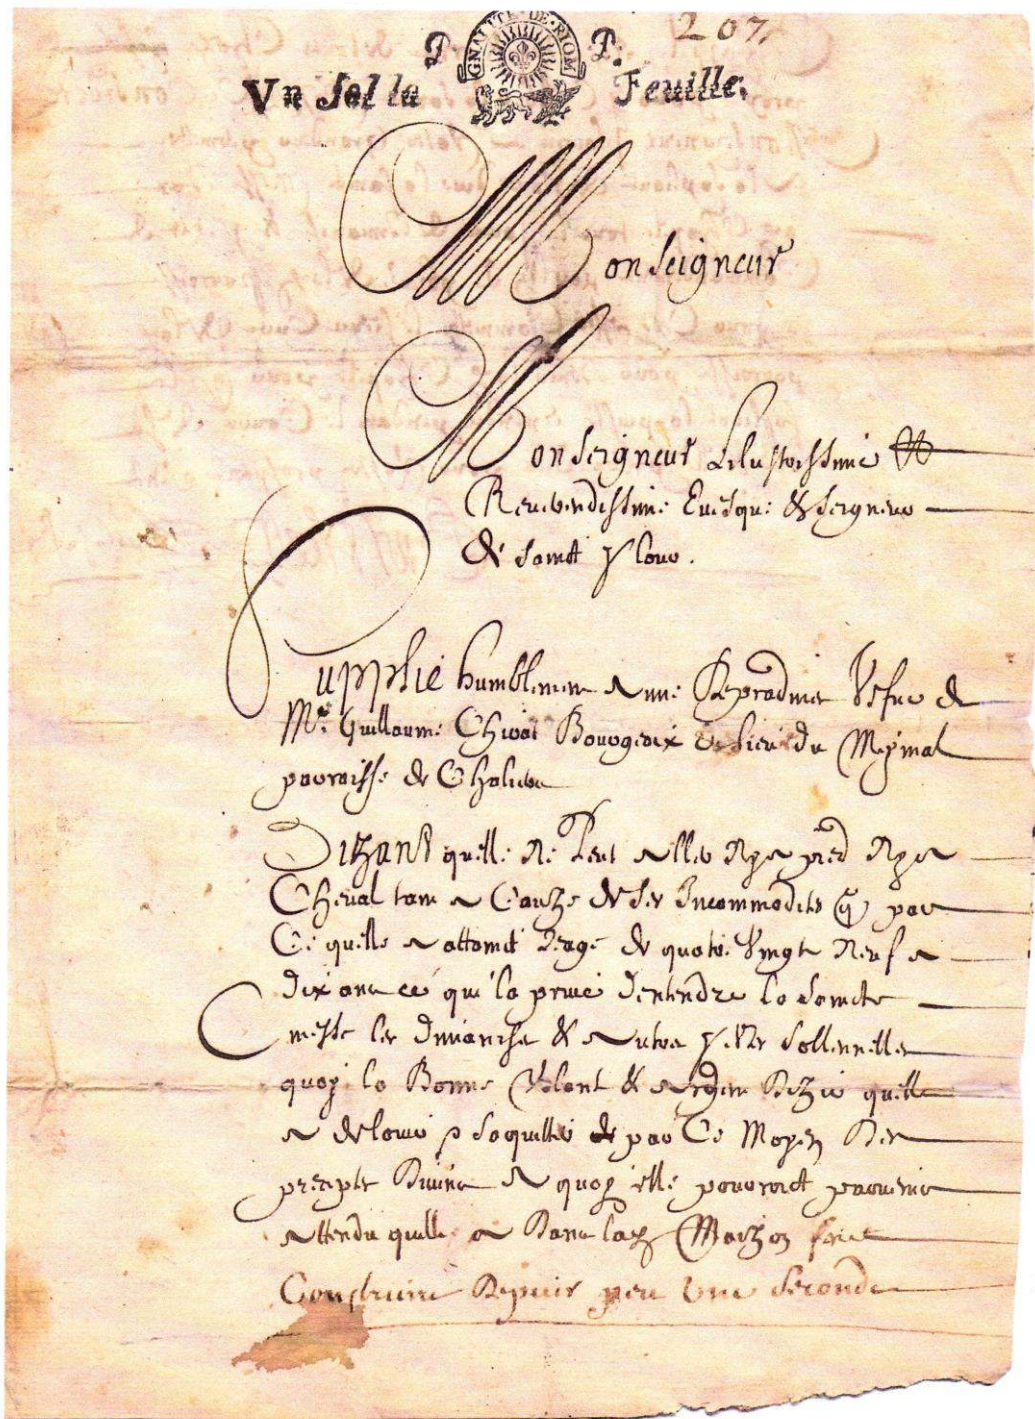 207.
P. P.
GNALITE · DE · RIOM
Vn Sol la Feuille.
Monseigneur
Monseigneur Lilustrissime &
Reverendissime Evesque & Seigneur
de Sainct flour.
Supplie humblement Anne Depradines Vefue de
Mre. Guillaume Chivot Bourgeoix du lieu du Meymal
parroisse de Chaliers
Dizant quelle ne Peut aller ny a pied ny a
Cheval tant a Cauze de ses Incommodites que par
Ce quelle a attainct leage de quatre Vingt neuf a
dix ans ce qui la prive dentendre la saincte
messe les dimanche & autres festes sollennelles
quoy la Bonne Volont & ardent dezir quelle
a de louir & saquitter de par Ce Moyen des
preceptes divins a quoy elle pourroict parvenir
attendu quelle a dans sa Maizon faict
Construire depuis peu Une seconde